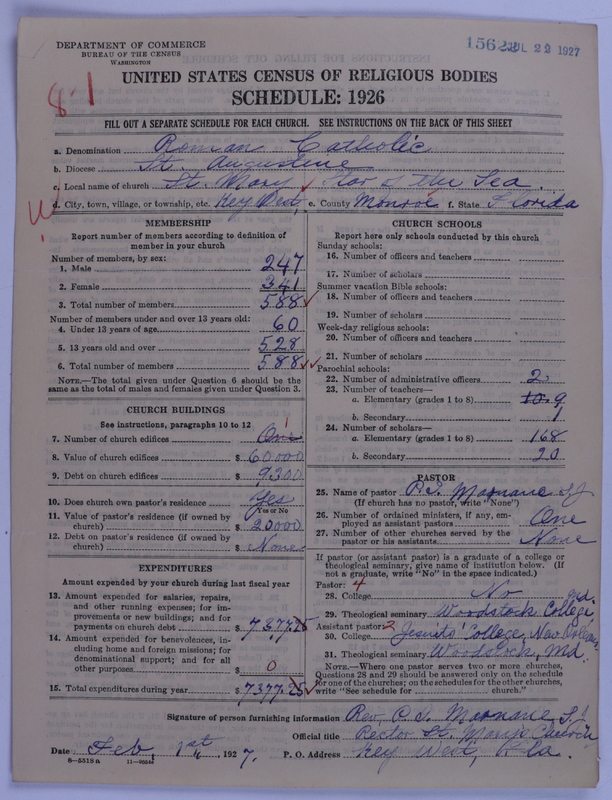 DEPARTMENT OF COMMERCE
BUREAU OF THE CENSUS
WASHINGTON
JUL 22 1927
8-1
UNITED STATES CENSUS OF RELIGIOUS BODIES
SCHEDULE: 1926
FILL OUT A SEPARATE SCHEDULE FOR EACH CHURCH. SEE INSTRUCTIONS ON THE BACK OF THIS SHEET
a. Denomination Roman Catholic
b. Diocese St. Augustine
c. Local name of church St. Mary Star of the Sea.
d. City, town, village, or township, etc. Key West, e. County Monroe f. State Florida
MEMBERSHIP
Report number of members according to definition of
member in your church
Number of members, by sex:
1. Male 247
2. Female 341
3. Total number of members 588
Number of members under and over 13 years old:
4. Under 13 years of age 60
5. 13 years old and over 528
6. Total number of members 588
NOTE.—The total given under Question 6 should be the
same as the total of males and females given under Question 3.
CHURCH BUILDINGS
See instructions, paragraphs 10 to 12
7. Number of church edifices One 1
8. Value of church edifices $ 60000
9. Debt on church edifices $ 9300
10. Does church own pastor's residence Yes
Yes or No
11. Value of pastor's residence (if owned by
church) $ 20000
12. Debt on pastor's residence (if owned by
church) $ None
EXPENDITURES
Amount expended by your church during last fiscal year
13. Amount expended for salaries, repairs,
and other running expenses; for im-
provements or new buildings; and for
payments on church debt $ 7377.25
14. Amount expended for benevolences, in-
cluding home and foreign missions; for
denominational support; and for all
other purposes $ 0
15. Total expenditures during year $ 7377.25
CHURCH SCHOOLS
Report here only schools conducted by this church
Sunday schools:
16. Number of officers and teachers
17. Number of scholars
Summer vacation Bible schools:
18. Number of officers and teachers
19. Number of scholars
Week-day religious schools:
20. Number of officers and teachers
21. Number of scholars
Parochial schools:
22. Number of administrative officers 2
23. Number of teachers—
a. Elementary (grades 1 to 8) 10. 9
b. Secondary 1
24. Number of scholars—
a. Elementary (grades 1 to 8) 168
b. Secondary 20
PASTOR
25. Name of pastor P.S. Marnane SJ
(If church has no pastor, write "None")
26. Number of ordained ministers, if any, em-
ployed as assistant pastors One
27. Number of other churches served by the
pastor or his assistants None
If pastor (or assistant pastor) is a graduate of a college or
theological seminary, give name of institution below. (If
not a graduate, write "No" in the space indicated.)
Pastor: 4
28. College No
29. Theological seminary Woodstock College Md.
Assistant pastor: 2
30. College Jesuits' College, New Orleans
31. Theological seminary Woodstock, Md.
NOTE.—Where one pastor serves two or more churches,
Questions 28 and 29 should be answered only on the schedule
for one of the churches; on the schedules for the other churches,
write "See schedule for church."
Signature of person furnishing information Rev. P.S. Marnane S.J
Official title Rector St. Mary's Church
Date Feb. 1st, 1927. P. O. Address Key West, Fla.
8—5518 a